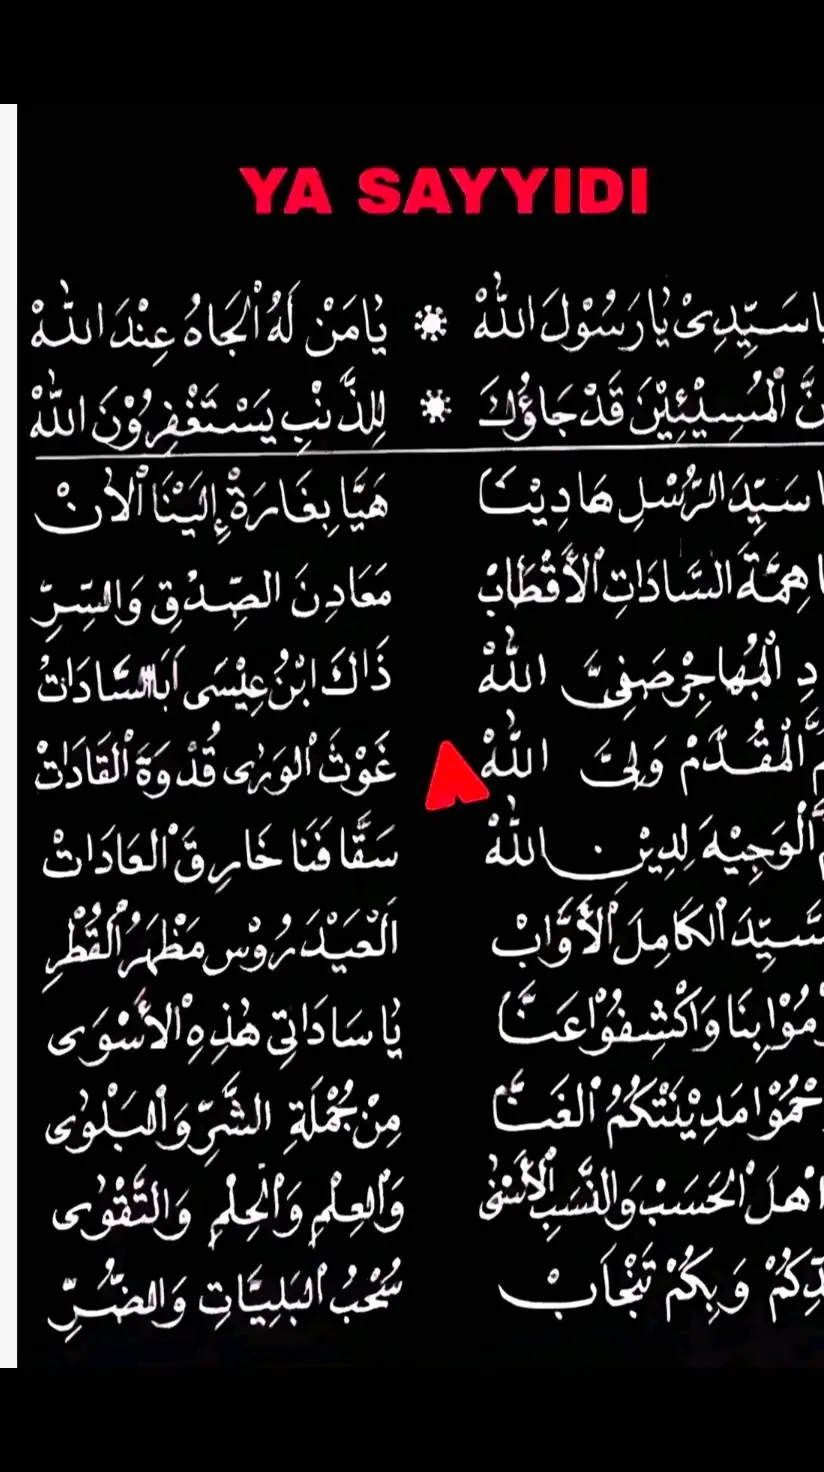 YA SAYYIDI
سَيِّدِيْ يَا رَسُوْلَ اللهْ ۞ يَامَنْ لَهُ الْجَاهُ عِنْدَ اللهْ
الْمُسِيْئِيْنَ قَدْ جَاؤُكَ ۞ لِلذَّنْبِ يَسْتَغْفِرُوْنَ اللهْ
سَيِّدَ الرُّسْلِ هَادِيْنَا هَيَّا بِغَارَةْ إِلَيْنَا الْأٰنْ
هِمَّةَ السَّادَاتِ الْأَقْطَابْ مَعَادِنَ الصِّدْقِ وَالسِّرِّ
الْمُهَاجِرْ صَفِيَّ اللهْ ذَاكَ ابْنُ عِيْسَى أَبَا السَّادَاتْ
الْمُقَدَّمْ وَلِيَّ اللهْ غَوْثَ الْوَرٰى قُدْوَةَ الْقَادَاتْ
الْوَجِيْهَ لِدِيْنِ اللهْ سَقَّافَنَا خَارِقَ الْعَادَاتْ
الْكَامِلَ الْأَوَّابْ اَلْعَيْدَرُوْسْ مَظْهَرُ الْقُطْرِ
بِنَا وَاكْشِفُوْا عَنَّا يَا سَادَاتِيْ هٰذِهِ الْأَسْوٰى
مَدِيْنَتَكُمُ الْغَنَّا مِنْ جُمْلَةِ الشَّرِّ وَالْبَلْوٰى
الْحَسَبْ وَالنَّسَبِ الْأَسْنٰى وَالْعِلْمِ وَالْحِلْمِ وَالتَّقْوٰى
وَبِكُمْ تَنْجَابْ سُحْبُ الْبَلِيَّاتِ وَالضُّرِّ